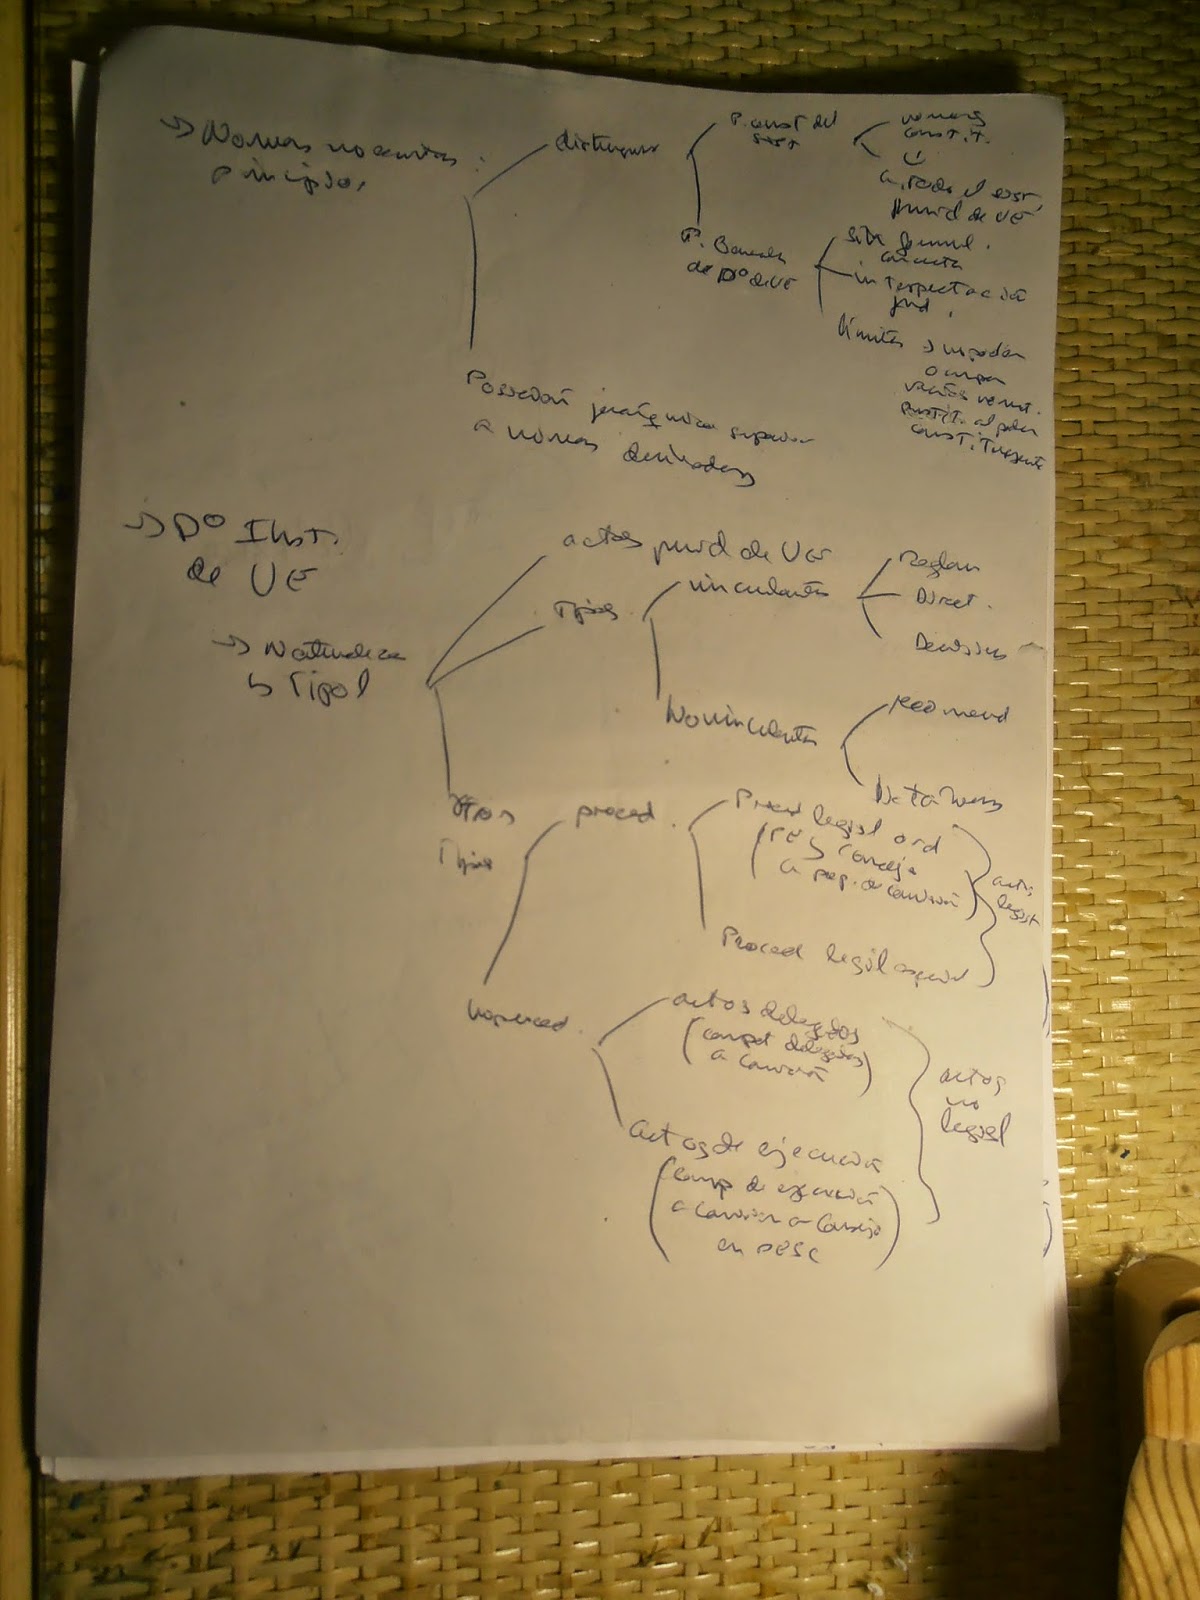 → Normas no escritas:
principios
distinguir
P. const del
sist
normas
constit.
a todo el sist.
jurid de UE
P. Generales
de Dº de UE
sin formul.
concreta
interpretación
jud.
límites → impedir
vacíos
constit. al poder
constituyente
Posición jerárquica superior
a normas derivadas
→ Dº Inst.
de UE
→ Naturaleza
↳ Tipol
actos jurid de UE
Tipos
vinculantes
Reglam
Direct.
Decisiones
No vinculantes
Recomend
Dictámenes
Otros
Tipos
proced.
Proced legisl ord
(PE y Consejo
a prop. de Comisión)
Proced legisl especial
actos
legisl
no proced.
actos delegados
(compet delegadas
a Comisión)
Actos de ejecución
(comp de ejecución
a Comisión o Consejo
en PESC)
actos
no
legisl